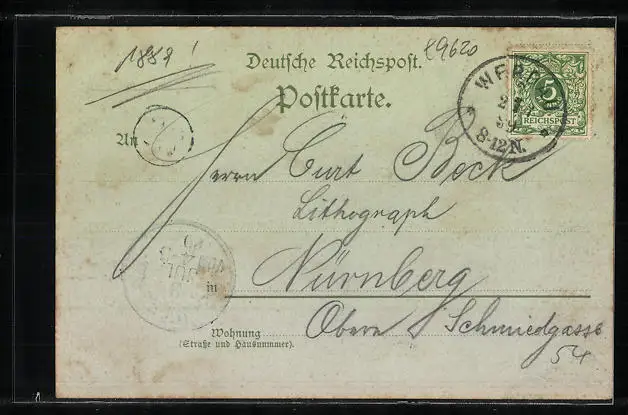 1889!
89620
Deutsche Reichspost.
Postkarte.
5
REICHSPOST
8-12 N.
An
Herrn Curt Beck
Lithograph
in Nürnberg
Obere Schmiedgasse
54
Wohnung
(Straße und Hausnummer).